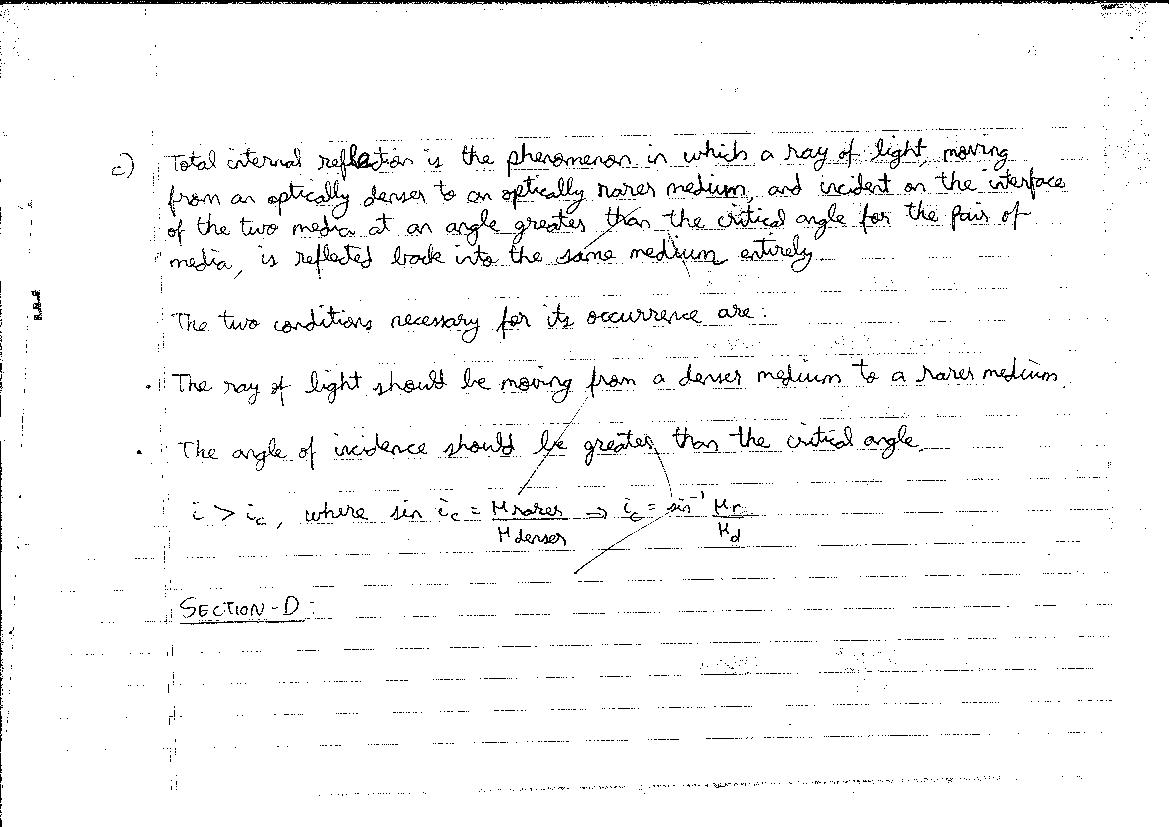 c) Total internal reflection is the phenomenon in which a ray of light, moving
from an optically denser to an optically rarer medium, and incident on the interface
of the two media at an angle greater than the critical angle for the pair of
media, is reflected back into the same medium entirely.
The two conditions necessary for its occurrence are:
• The ray of light should be moving from a denser medium to a rarer medium.
• The angle of incidence should be greater than the critical angle.
i > i_c, where sin i_c = μ rarer / μ denser ⇒ i_c = sin⁻¹ μ_r / μ_d
SECTION-D: